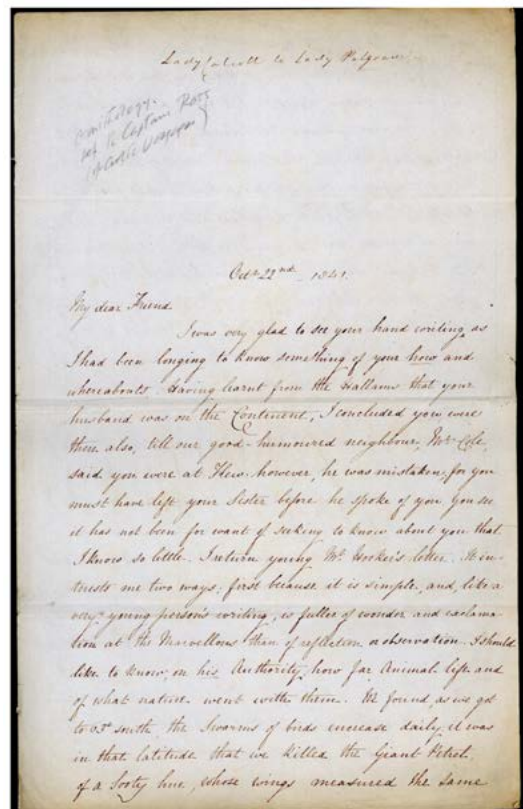 Lady Calcott to Lady Palgrave
Ornithology.
ref to Captain Ross
Oct.r 22nd 1841.
My dear Friend
I was very glad to see your hand writing, as
I had been longing to know something of your how and
whereabouts. Having learnt from the Hallams that your
husband was on the Continent, I concluded you were
there also, till our good-humoured neighbour, Mr. Cole,
said you were at Kew. however, he was mistaken, for you
must have left your Sister before he spoke of you. you see
it has not been for want of seeking to know about you that
I know so little. I return young Mr. Hooker's letter. It in-
terests me two ways; first because it is simple, and, like a
very young person's writing, is fuller of wonder and exclama-
tion at the Marvellous than of reflection or observation. I should
like to know, on his Authority, how far Animal life and
of what nature went with them. We found, as we got
to 63° south, the swarms of birds encrease daily, it was
in that latitude that we killed the Giant Petrel,
of a Sooty hue, whose wings measured the same